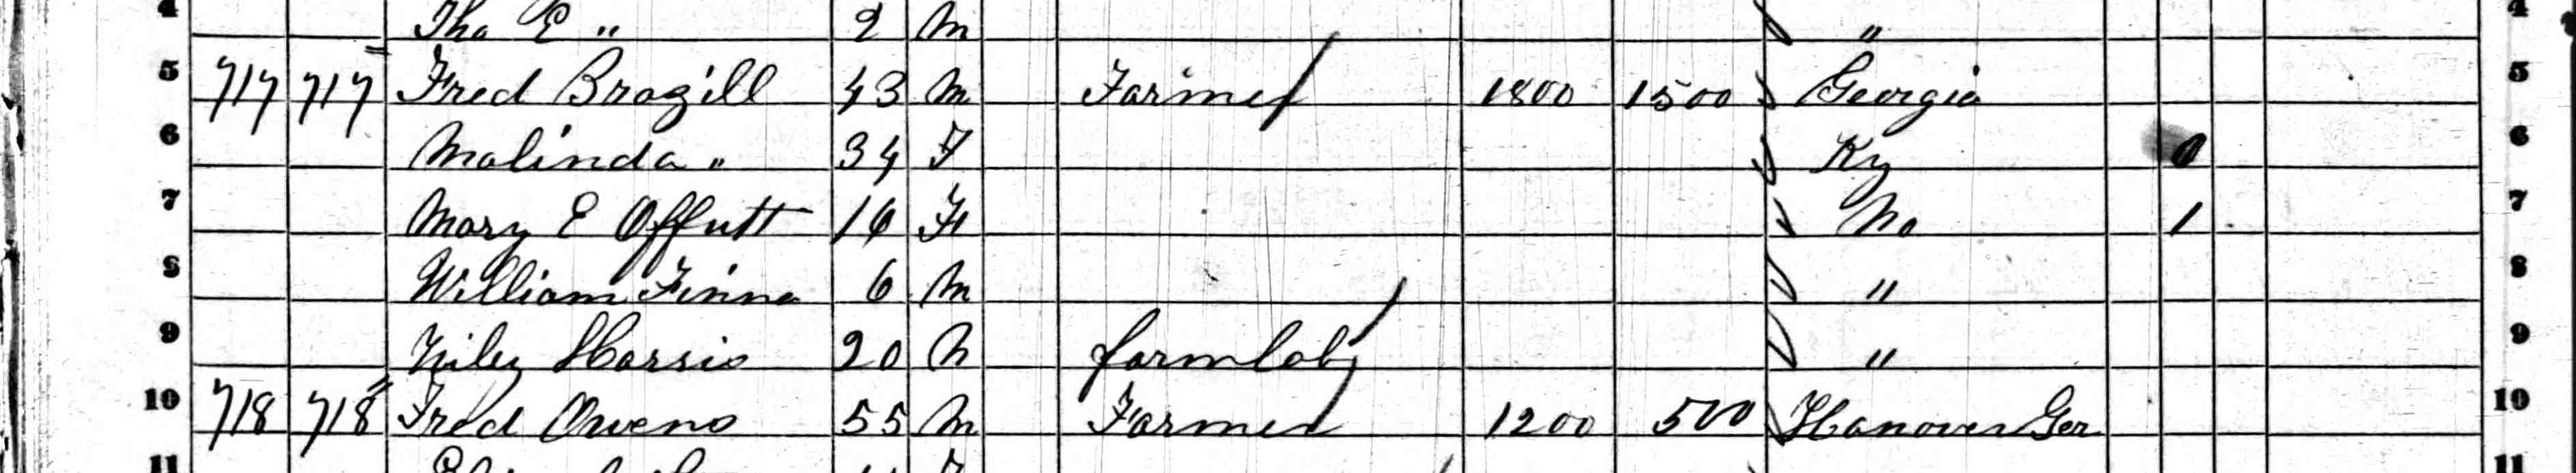 4 Tho E " 2 M " 4
5 717 717 Fred Brazill 43 M Farmer 1800 1500 Georgia 5
6 Malinda " 34 F Ky 6
7 Mary E Offutt 16 F Mo 1 7
8 William Finna 6 M " 8
9 Harris 20 M farm lab " 9
10 718 718 Fred Owens 55 M Farmer 1200 500 Hanover Ger 10
11 11